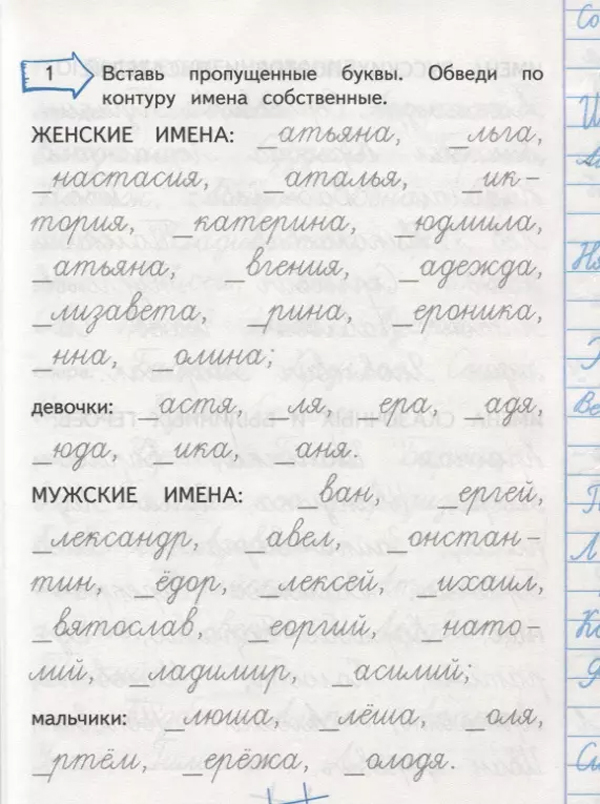 1 Вставь пропущенные буквы. Обведи по
контуру имена собственные.
ЖЕНСКИЕ ИМЕНА: _атьяна, _льга,
_настасия, _аталья, _ик-
тория, _катерина, _юдмила,
_атьяна, _вгения, _адежда,
_лизавета, _рина, _ероника,
_нна, _олина;
девочки: _астя, _ля, _ера, _адя,
_юда, _ика, _аня.
МУЖСКИЕ ИМЕНА: _ван, _ергей,
_лександр, _авел, _онстан-
тин, _ёдор, _лексей, _ихаил,
_вятослав, _еоргий, _нато-
лий, _ладимир, _асилий;
мальчики: _люша, _лёша, _оля,
_ртём, _ерёжа, _олодя.